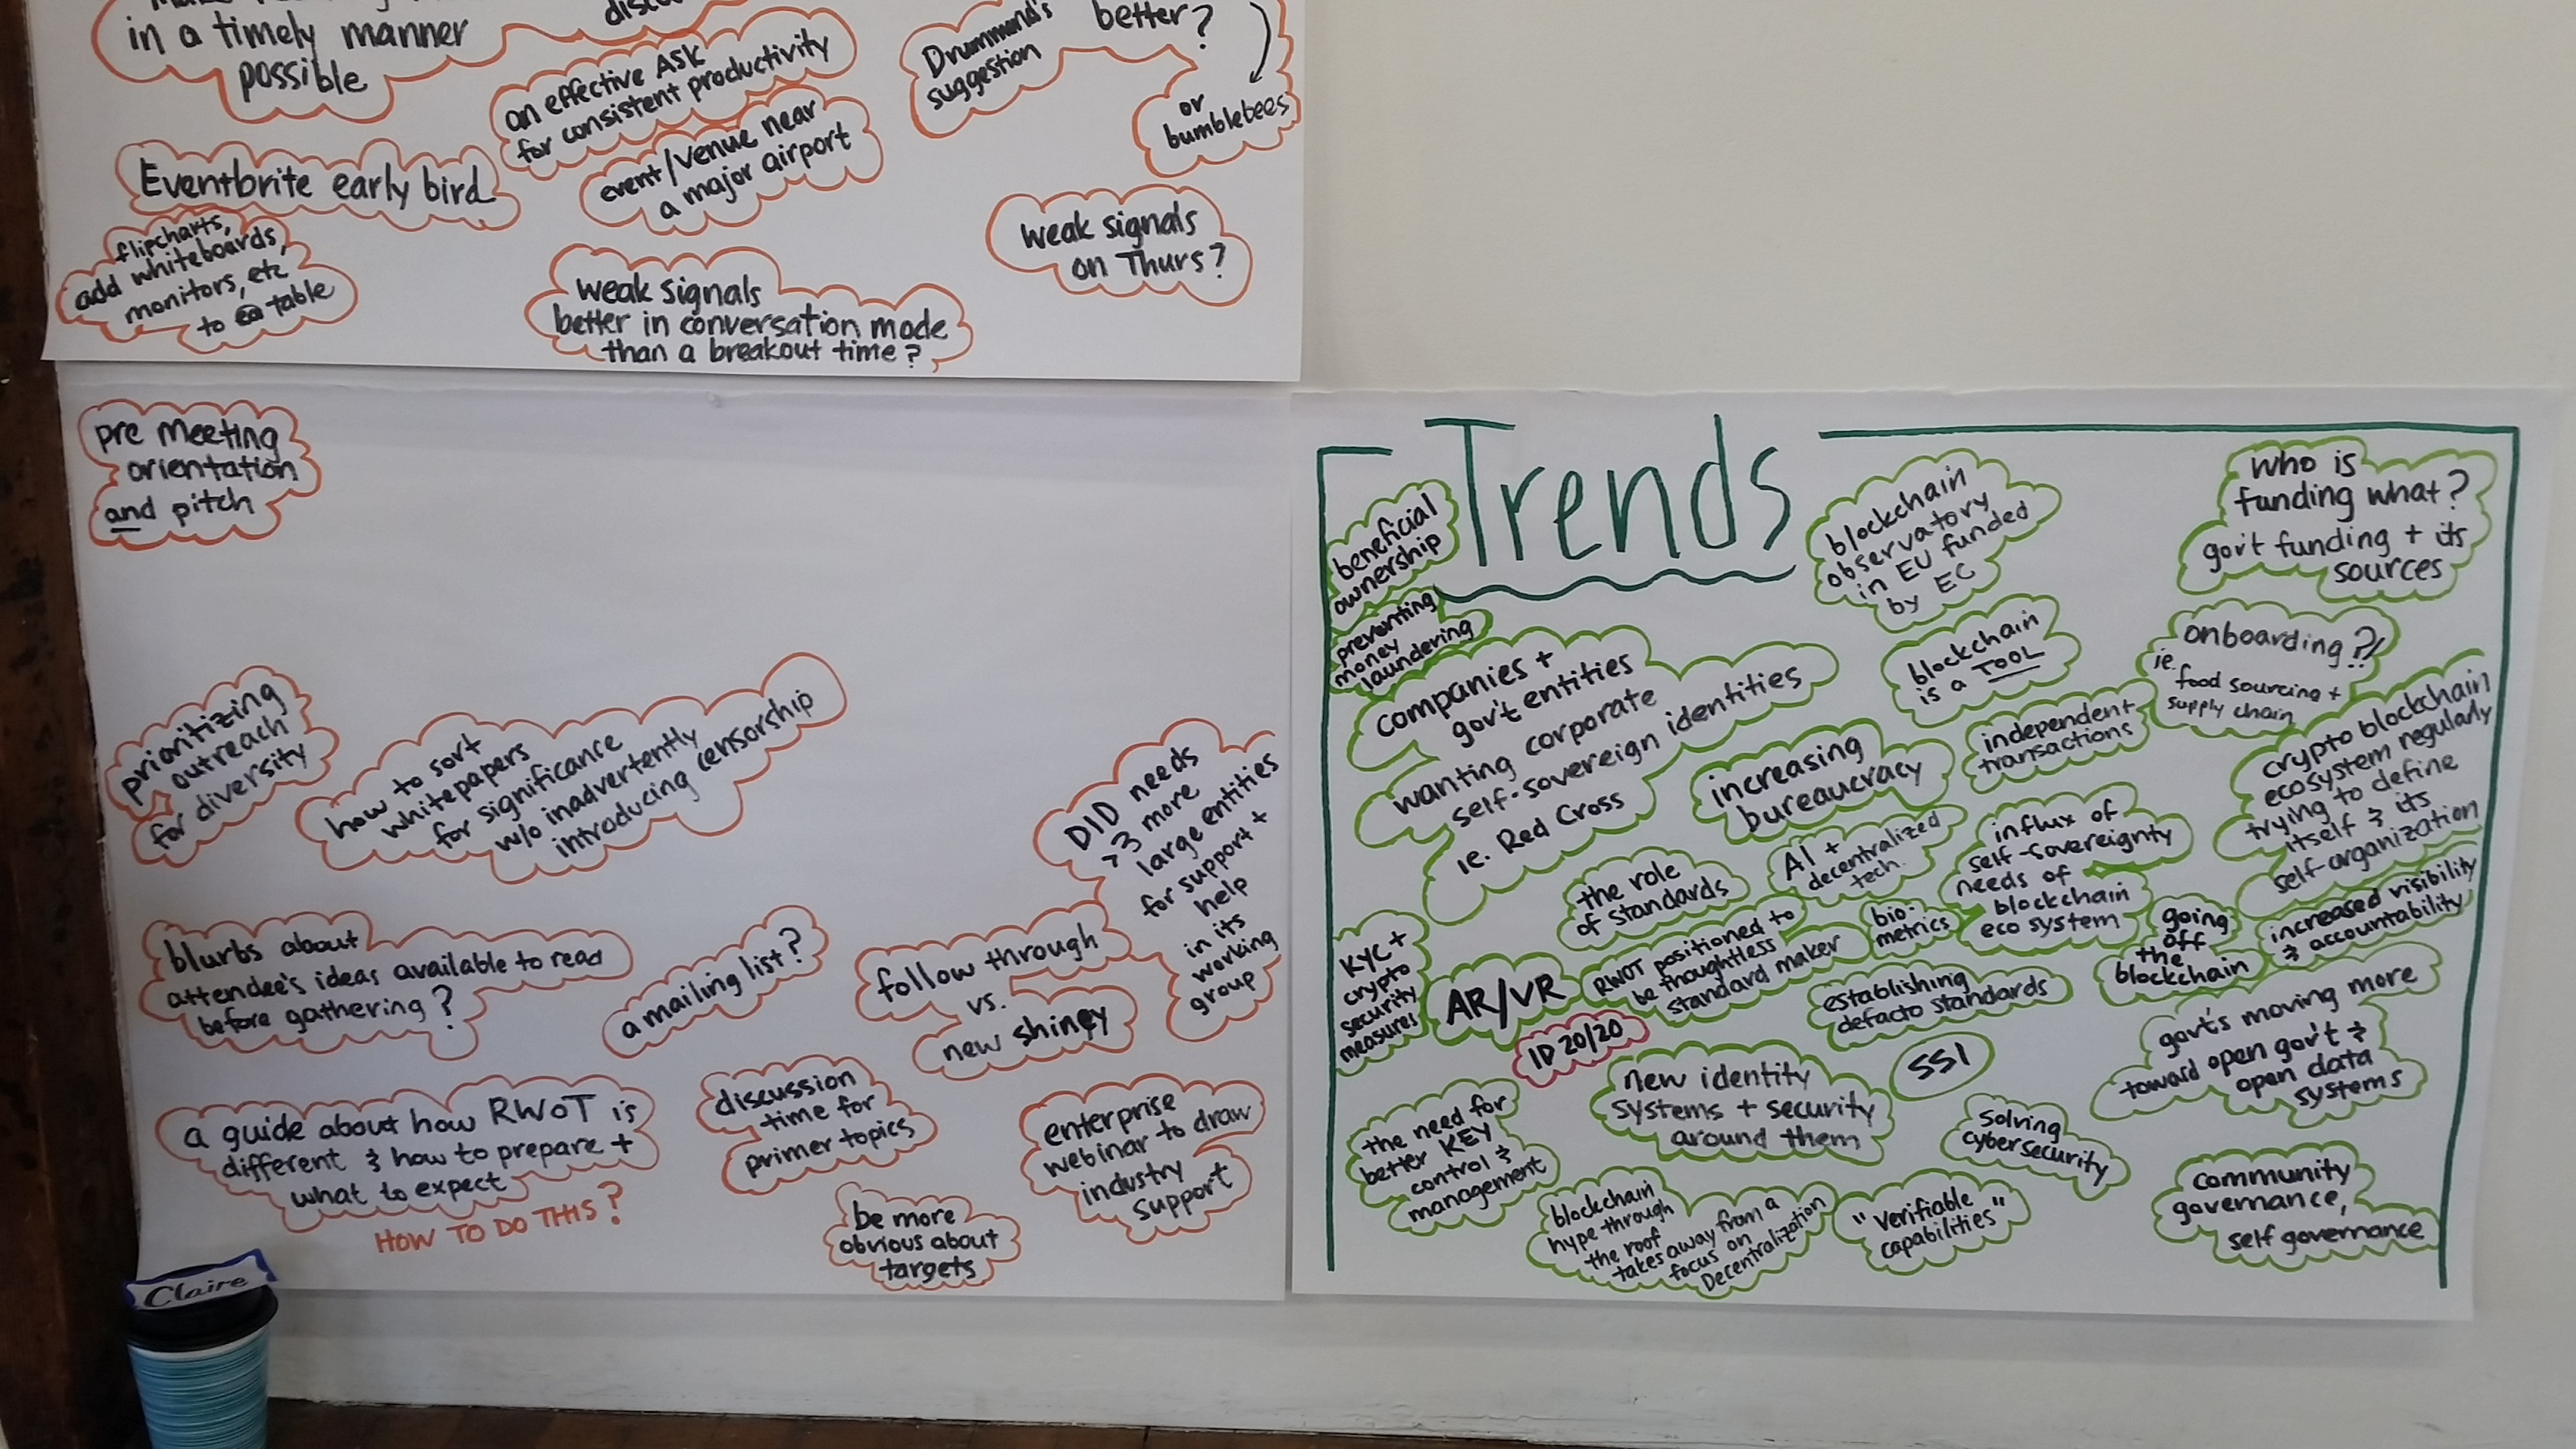 in a timely manner
possible
an effective ASK
for consistent productivity
Drummond's
suggestion
better?
or
bumblebees
Eventbrite early bird
event/venue near
a major airport
flipcharts,
add whiteboards,
monitors, etc
to ea table
weak signals
better in conversation mode
than a breakout time?
weak signals
on Thurs?
pre meeting
orientation
and pitch
prioritizing
outreach
for diversity
how to sort
whitepapers
for significance
w/o inadvertently
introducing censorship
DID needs
>3 more
large entities
for support +
help
in its
working
group
blurbs about
attendee's ideas available to read
before gathering?
a mailing list?
follow through
vs.
new shiney
a guide about how RWoT is
different & how to prepare +
what to expect
HOW TO DO THIS?
discussion
time for
primer topics
be more
obvious about
targets
enterprise
webinar to draw
industry
support
Claire
Trends
beneficial
ownership
preventing
money
laundering
blockchain
observatory
in EU funded
by EC
who is
funding what?
gov't funding + its
sources
companies +
gov't entities
wanting corporate
self-sovereign identities
ie. Red Cross
blockchain
is a TOOL
onboarding?!
ie.
food sourcing +
supply chain
increasing
bureaucracy
independent
transactions
crypto blockchain
ecosystem regularly
trying to define
itself & its
self-organization
the role
of standards
AI +
decentralized
tech.
influx of
self-sovereignty
needs of
blockchain
eco system
KYC +
crypto
security
measures
AR/VR
RWOT positioned to
be thoughtless
standard maker
bio-
metrics
going
off
the
blockchain
increased visibility
& accountability
ID 20/20
establishing
defacto standards
gov't's moving more
toward open gov't &
open data
systems
the need for
better KEY
control &
management
new identity
systems + security
around them
SSI
solving
cybersecurity
blockchain
hype through
the roof
takes away from a
focus on
Decentralization
"verifiable
capabilities"
community
governance,
self governance